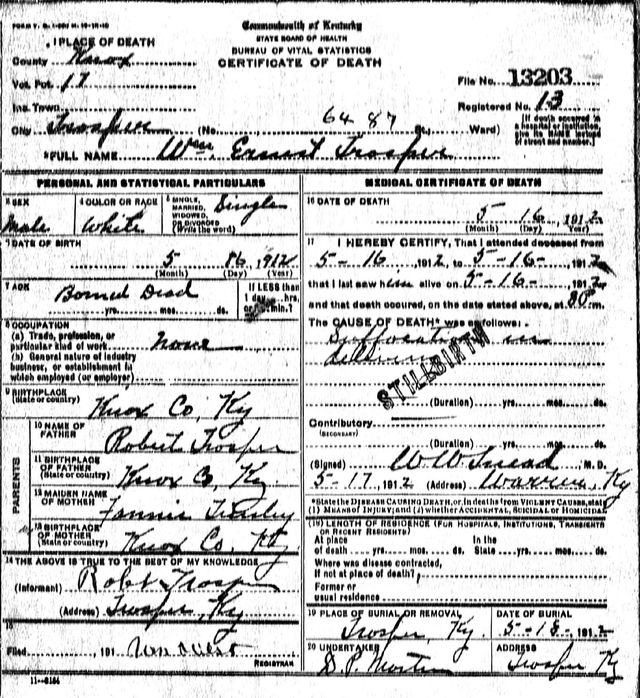 Commonwealth of Kentucky
STATE BOARD OF HEALTH
BUREAU OF VITAL STATISTICS
CERTIFICATE OF DEATH
1 PLACE OF DEATH
County Knox
Vot. Pct. 17
File No. 13203
Inc. Town
Registered No. 13
City Trosper (No. 6487 St., Ward)
[If death occurred in a hospital or institution, give its NAME instead of street and number.]
2 FULL NAME Wm. Ernest Trosper
PERSONAL AND STATISTICAL PARTICULARS
3 SEX Male
4 COLOR OR RACE White
5 SINGLE, MARRIED, WIDOWED, OR DIVORCED (Write the word) Single
6 DATE OF BIRTH
5 1912
(Month) (Day) (Year)
7 AGE
Borned Dead
yrs. mos. ds.
If LESS than 1 day, hrs. or min.?
8 OCCUPATION
(a) Trade, profession, or particular kind of work None
(b) General nature of industry business, or establishment in which employed (or employer)
9 BIRTHPLACE (State or country) Knox Co, Ky
PARENTS
10 NAME OF FATHER Robert Trosper
11 BIRTHPLACE OF FATHER (State or country) Knox Co, Ky
12 MAIDEN NAME OF MOTHER Fannie
13 BIRTHPLACE OF MOTHER (State or country) Knox Co, Ky
14 THE ABOVE IS TRUE TO THE BEST OF MY KNOWLEDGE
(Informant) Robt Trosper
(Address) Trosper, Ky
15
Filed 191
REGISTRAR
11-3184
MEDICAL CERTIFICATE OF DEATH
16 DATE OF DEATH
5 16, 1912
(Month) (Day) (Year)
17 I HEREBY CERTIFY, That I attended deceased from
5-16 1912, to 5-16-, 1912
that I last saw him alive on 5-16-, 1912
and that death occured, on the date stated above, at m.
The CAUSE OF DEATH* was as follows:
Suffocation in
delivery
STILLBIRTH
(Duration) yrs. mos. ds.
Contributory
(SECONDARY)
(Duration) yrs. mos. ds.
(Signed) W W Smead M.D.
5-17, 1912 (Address) Warren, Ky
*State the DISEASE CAUSING DEATH, or, in deaths from VIOLENT CAUSES, state
(1) MEANS OF INJURY; and (2) whether ACCIDENTAL, SUICIDAL or HOMICIDAL
18 LENGTH OF RESIDENCE (FOR HOSPITALS, INSTITUTIONS, TRANSIENTS OR RECENT RESIDENTS)
At place of death yrs. mos. ds. In the State yrs. mos. ds.
Where was disease contracted, If not at place of death?
Former or usual residence
19 PLACE OF BURIAL OR REMOVAL
Trosper, Ky.
DATE OF BURIAL
5-18, 1912
20 UNDERTAKER
D P
ADDRESS
Trosper Ky